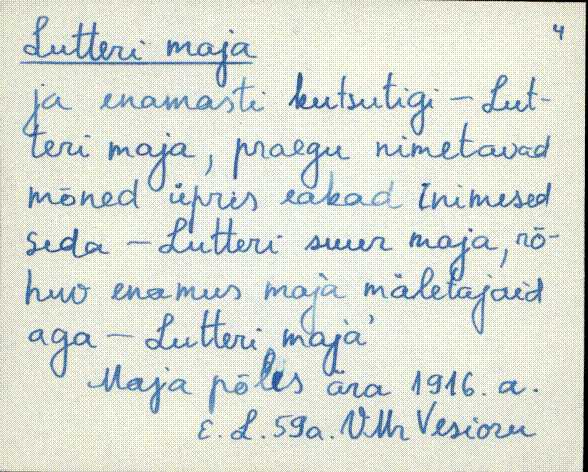 4
Lutteri maja
ja enamasti kutsutigi – Lut-
teri maja, praegu nimetavad
mõned üpris eakad inimesed
seda – Lutteri suur maja, rõ-
huv enamus maja mäletajaid
aga – Lutteri maja'
Maja põles ära 1916. a.
E. L. 59a. VMr Vesioru